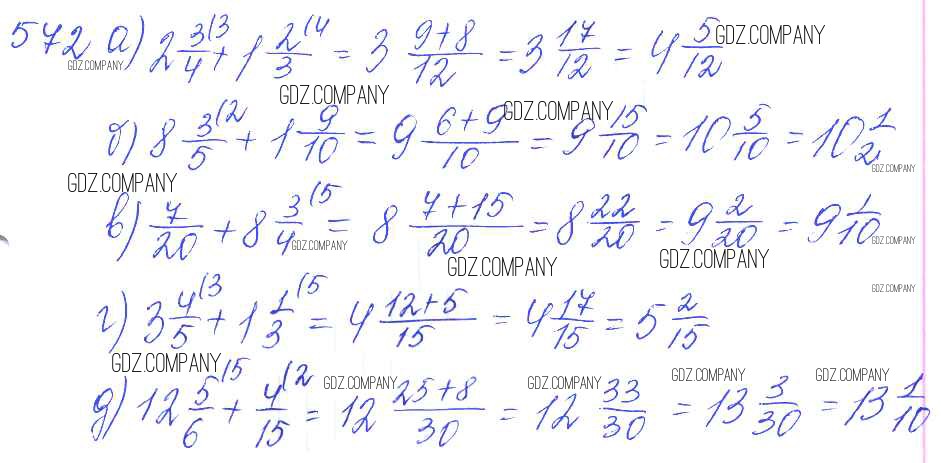 572 а) 2 3/4(3 + 1 2/3(4 = 3 9+8/12 = 3 17/12 = 4 5/12 GDZ.COMPANY
GDZ.COMPANY
GDZ.COMPANY GDZ.COMPANY
б) 8 3/5(2 + 1 9/10 = 9 6+9/10 = 9 15/10 = 10 5/10 = 10 1/2
GDZ.COMPANY GDZ.COMPANY
в) 7/20 + 8 3/4(5 = 8 7+15/20 = 8 22/20 = 9 2/20 = 9 1/10
GDZ.COMPANY GDZ.COMPANY
GDZ.COMPANY GDZ.COMPANY
GDZ.COMPANY
г) 3 4/5(3 + 1 1/3(5 = 4 12+5/15 = 4 17/15 = 5 2/15
GDZ.COMPANY GDZ.COMPANY GDZ.COMPANY GDZ.COMPANY GDZ.COMPANY
д) 12 5/6(5 + 4/15(2 = 12 25+8/30 = 12 33/30 = 13 3/30 = 13 1/10